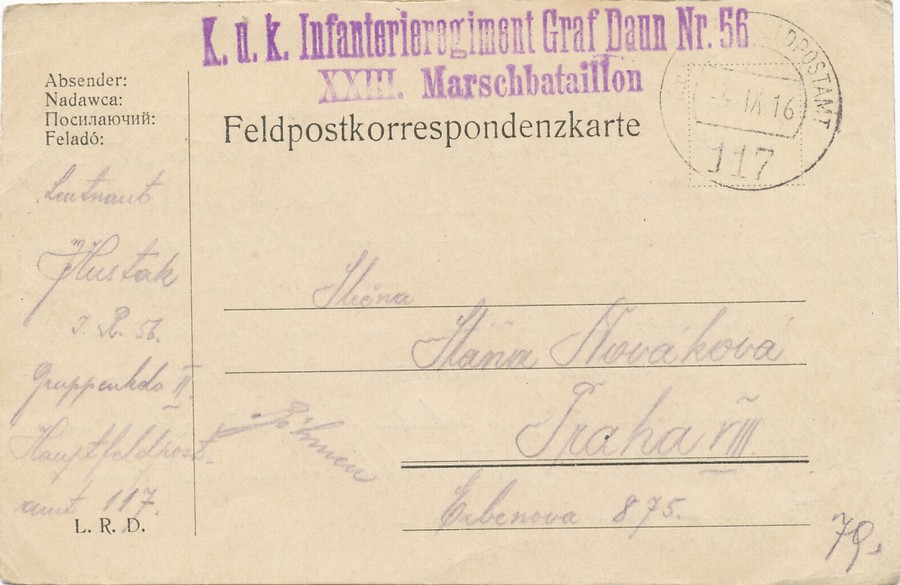 K. u. k. Infanterieregiment Graf Daun Nr. 56
XXIII. Marschbataillon
FELDPOSTAMT
IX 16
117
Absender:
Nadawca:
Посилаючий:
Feladó:
Feldpostkorrespondenzkarte
Leutnant
Hustak
I. R. 56.
Gruppenkdo II
Hauptfeldpost
amt 117.
L. R. D.
Slečna
Stáňa Nováková
Praha VIII.
Böhmen
Erbenova 875.
79.